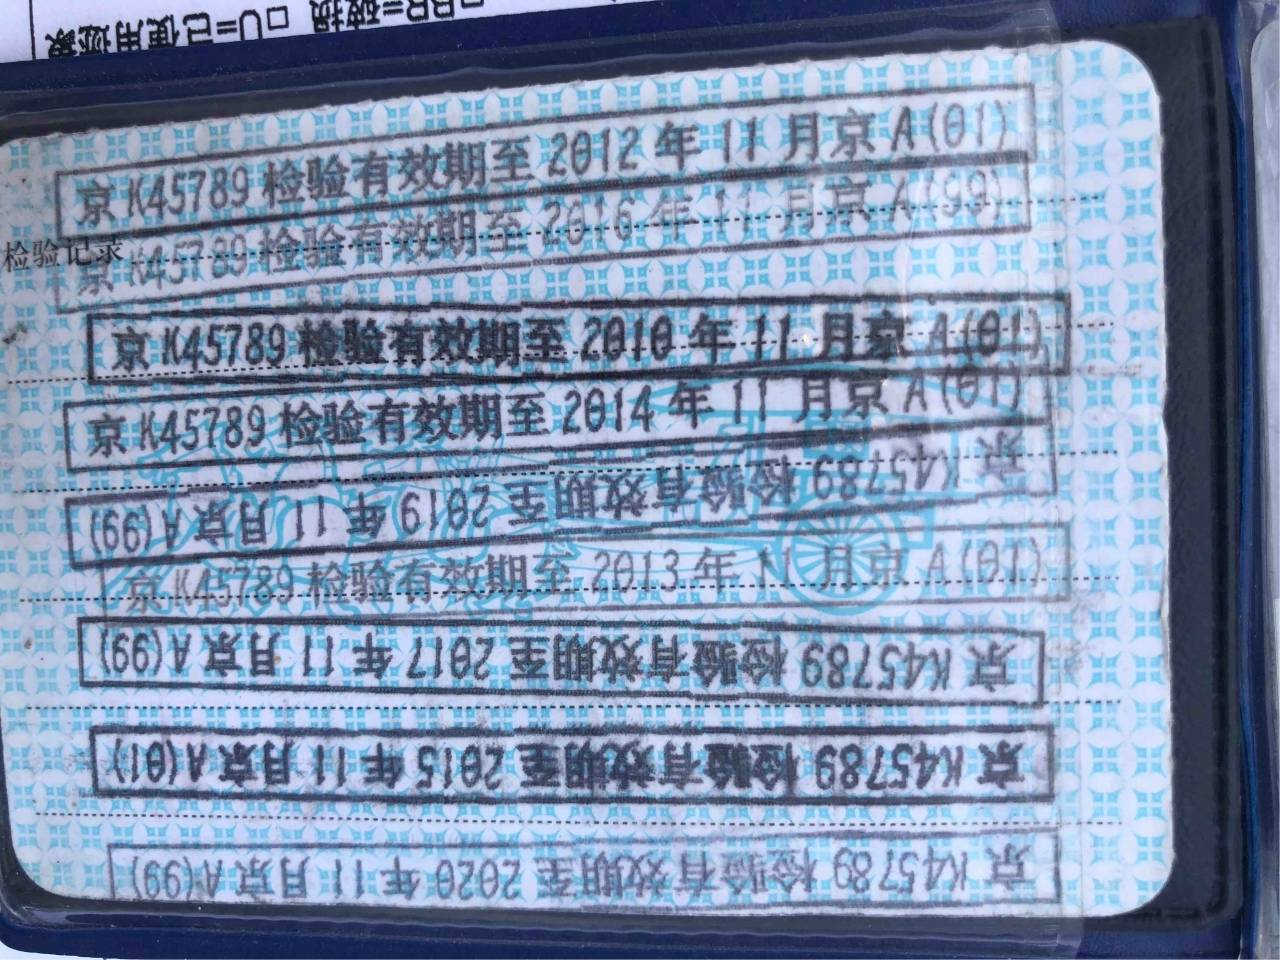 □U=已使用迹象 □BR=破损
京 K45789 检验有效期至 2012 年 11 月京 A(01)
京 K45789 检验有效期至 2016 年 11 月京 A(99)
检验记录
京 K45789 检验有效期至 2010 年 11 月京 A(01)
京 K45789 检验有效期至 2014 年 11 月京 A(01)
京 K45789 检验有效期至 2019 年 11 月京 A(99)
京 K45789 检验有效期至 2013 年 11 月京 A(01)
京 K45789 检验有效期至 2017 年 11 月京 A(99)
京 K45789 检验有效期至 2015 年 11 月京 A(01)
京 K45789 检验有效期至 2020 年 11 月京 A(99)